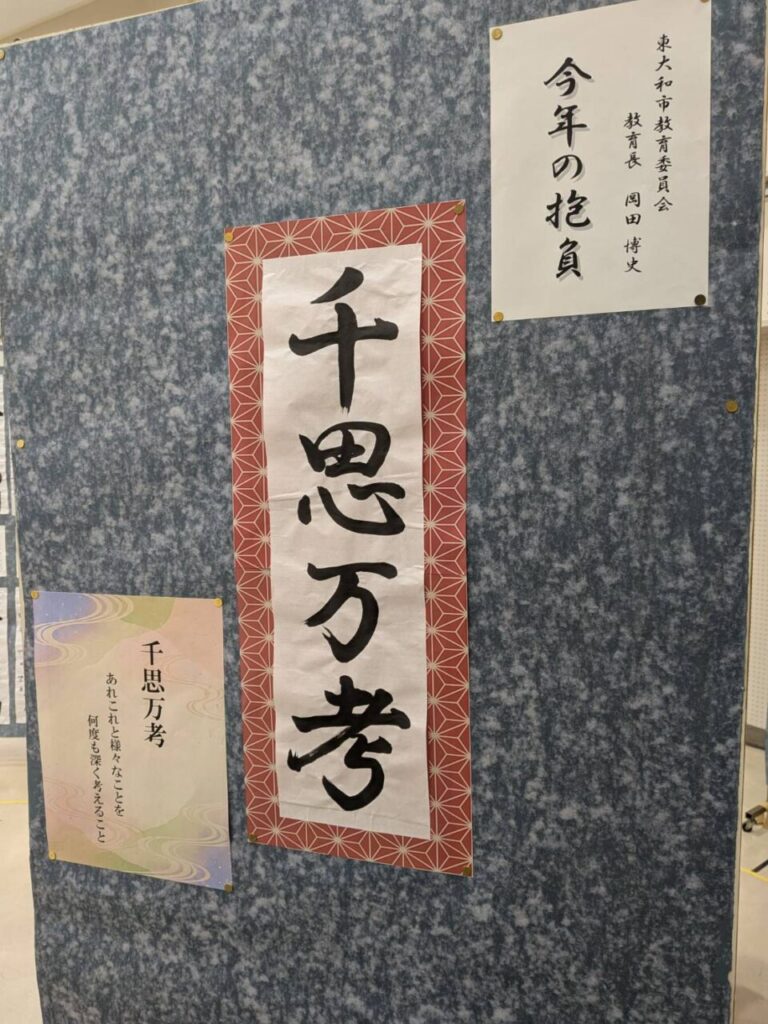 東大和市教育委員会
教育長 岡田 博史
今年の抱負
千思万考
千思万考
あれこれと様々なことを
何度も深く考えること